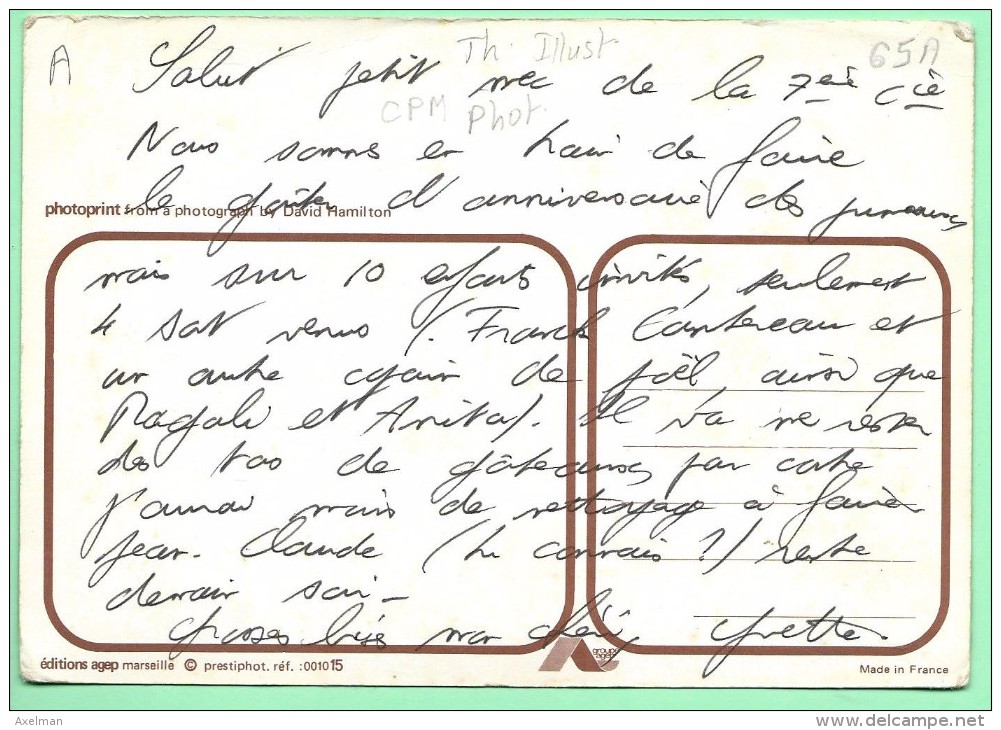 A
Th. Illust
65A
Salut petit mec de la 7eiè Ciè
CPM Phot.
Nous sommes en train de faire
le goûter d'anniversaire des jumeaux
photoprint from a photograph by David Hamilton
mais sur 10 enfants invités, seulement
4 sont venus (Franck Cantereau et
un autre copain de Joël, ainsi que
Magali et Anita). Il va me rester
des tas de gâteaux, par contre
j'aurai moins de nettoyage à faire
Jean-Claude (tu connais ?) rentre
demain soir -
Grosses bises mon chéri, Yvette.
groupe agep
éditions agep marseille © prestiphot. réf. :001015
Made in France
Axelman
www.delcampe.net